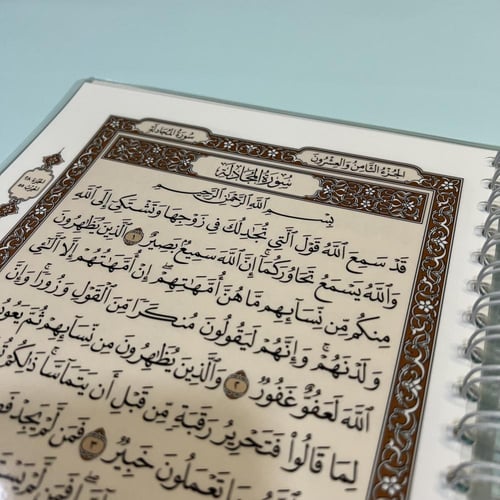 سورة المجادلة
الجزء الثامن والعشرون
سُورَةُ المُجَادلَةِ
بِسْمِ ٱللَّهِ ٱلرَّحْمَٰنِ ٱلرَّحِيمِ
قَدْ سَمِعَ ٱللَّهُ قَوْلَ ٱلَّتِي تُجَٰدِلُكَ فِي زَوْجِهَا وَتَشْتَكِيٓ إِلَى ٱللَّهِ
وَٱللَّهُ يَسْمَعُ تَحَاوُرَكُمَآۚ إِنَّ ٱللَّهَ سَمِيعُۢ بَصِيرٌ ١ ٱلَّذِينَ يُظَٰهِرُونَ
مِنكُم مِّن نِّسَآئِهِم مَّا هُنَّ أُمَّهَٰتِهِمْۖ إِنْ أُمَّهَٰتُهُمْ إِلَّا ٱلَّٰٓـِٔي
وَلَدْنَهُمْۚ وَإِنَّهُمْ لَيَقُولُونَ مُنكَرًا مِّنَ ٱلْقَوْلِ وَزُورًاۚ وَإِنَّ
ٱللَّهَ لَعَفُوٌّ غَفُورٌ ٢ وَٱلَّذِينَ يُظَٰهِرُونَ مِن نِّسَآئِهِمْ ثُمَّ يَعُودُ
لِمَا قَالُوا۟ فَتَحْرِيرُ رَقَبَةٍ مِّن قَبْلِ أَن يَتَمَآسَّاۚ ذَٰلِكُمْ
بِمَا تَعْمَلُونَ خَبِيرٌ ٣ فَمَن لَّمْ يَجِدْ